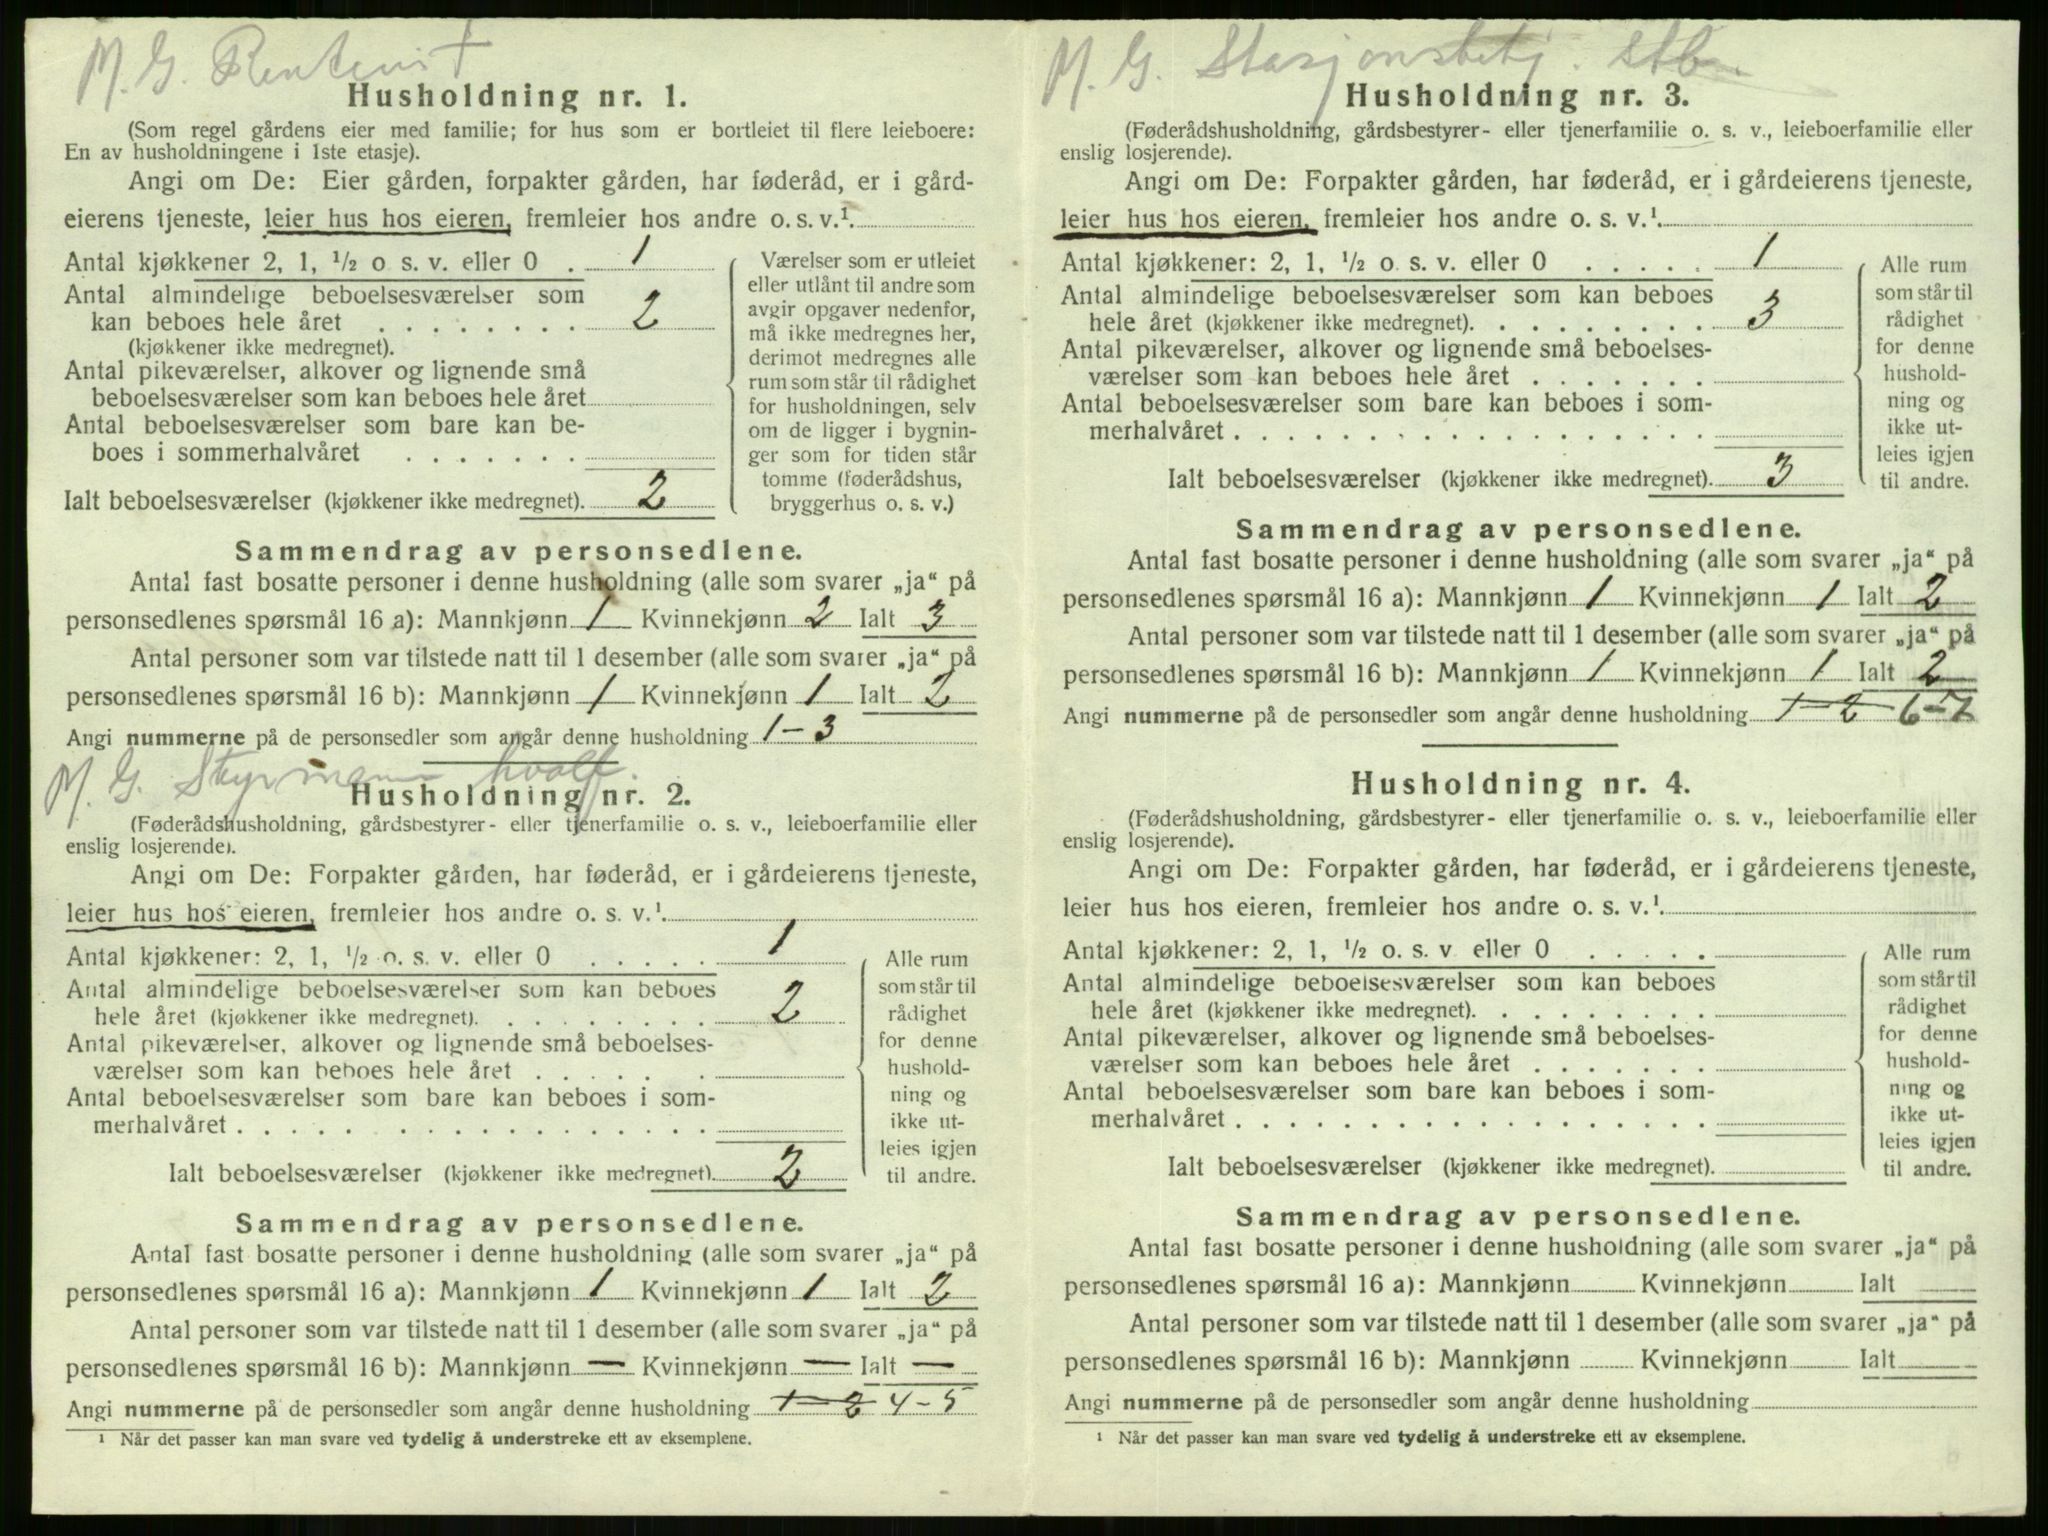 M. G. Rentenist
Husholdning nr. 1.
(Som regel gårdens eier med familie; for hus som er bortleiet til flere leieboere:
En av husholdningene i 1ste etasje).
Angi om De: Eier gården, forpakter gården, har føderåd, er i gård-
eierens tjeneste, leier hus hos eieren, fremleier hos andre o. s. v.¹.
Antal kjøkkener 2, 1, ½ o s. v. eller 0 . 1
Antal almindelige beboelsesværelser som
kan beboes hele året . . . . . . . . 2
(kjøkkener ikke medregnet).
Antal pikeværelser, alkover og lignende små
beboelsesværelser som kan beboes hele året
Antal beboelsesværelser som bare kan be-
boes i sommerhalvåret . . . . . . .
Ialt beboelsesværelser (kjøkkener ikke medregnet). 2
Værelser som er utleiet
eller utlånt til andre som
avgir opgaver nedenfor,
må ikke medregnes her,
derimot medregnes alle
rum som står til rådighet
for husholdningen, selv
om de ligger i bygnin-
ger som for tiden står
tomme (føderådshus,
bryggerhus o. s. v.)
Sammendrag av personsedlene.
Antal fast bosatte personer i denne husholdning (alle som svarer „ja“ på
personsedlenes spørsmål 16 a): Mannkjønn 1 Kvinnekjønn 2 Ialt 3
Antal personer som var tilstede natt til 1 desember (alle som svarer „ja“ på
personsedlenes spørsmål 16 b): Mannkjønn 1 Kvinnekjønn 1 Ialt 2
Angi nummerne på de personsedler som angår denne husholdning 1-3
M. G. Styrmann hvalf.
Husholdning nr. 2.
(Føderådshusholdning, gårdsbestyrer- eller tjenerfamilie o. s. v., leieboerfamilie eller
enslig losjerende).
Angi om De: Forpakter gården, har føderåd, er i gårdeierens tjeneste,
leier hus hos eieren, fremleier hos andre o. s. v.¹.
Antal kjøkkener: 2, 1, ½ o. s. v. eller 0 . . . . . 1
Antal almindelige beboelsesværelser som kan beboes
hele året (kjøkkener ikke medregnet). . . . . . . . . 2
Antal pikeværelser, alkover og lignende små beboelses-
værelser som kan beboes hele året . . . . . . .
Antal beboelsesværelser som bare kan beboes i som-
merhalvåret . . . . . . . . . . . . . . . . . .
Ialt beboelsesværelser (kjøkkener ikke medregnet). 2
Alle rum
som står til
rådighet
for denne
hushold-
ning og
ikke ut-
leies igjen
til andre.
Sammendrag av personsedlene.
Antal fast bosatte personer i denne husholdning (alle som svarer „ja“ på
personsedlenes spørsmål 16 a): Mannkjønn 1 Kvinnekjønn 1 Ialt 2
Antal personer som var tilstede natt til 1 desember (alle som svarer „ja“ på
personsedlenes spørsmål 16 b): Mannkjønn — Kvinnekjønn — Ialt —
Angi nummerne på de personsedler som angår denne husholdning 1-2 4-5
¹ Når det passer kan man svare ved tydelig å understreke ett av eksemplene.
M. G. Stasjonsbetj.
Husholdning nr. 3.
(Føderådshusholdning, gårdsbestyrer- eller tjenerfamilie o. s. v., leieboerfamilie eller
enslig losjerende).
Angi om De: Forpakter gården, har føderåd, er i gårdeierens tjeneste,
leier hus hos eieren, fremleier hos andre o. s. v.¹.
Antal kjøkkener: 2, 1, ½ o. s. v. eller 0 . . . . . 1
Antal almindelige beboelsesværelser som kan beboes
hele året (kjøkkener ikke medregnet). . . . . . . . . 3
Antal pikeværelser, alkover og lignende små beboelses-
værelser som kan beboes hele året . . . . . . .
Antal beboelsesværelser som bare kan beboes i som-
merhalvåret . . . . . . . . . . . . . . . . . .
Ialt beboelsesværelser (kjøkkener ikke medregnet). 3
Alle rum
som står til
rådighet
for denne
hushold-
ning og
ikke ut-
leies igjen
til andre.
Sammendrag av personsedlene.
Antal fast bosatte personer i denne husholdning (alle som svarer „ja“ på
personsedlenes spørsmål 16 a): Mannkjønn 1 Kvinnekjønn 1 Ialt 2
Antal personer som var tilstede natt til 1 desember (alle som svarer „ja“ på
personsedlenes spørsmål 16 b): Mannkjønn 1 Kvinnekjønn 1 Ialt 2
Angi nummerne på de personsedler som angår denne husholdning 1-2 6-7
Husholdning nr. 4.
(Føderådshusholdning, gårdsbestyrer- eller tjenerfamilie o. s. v., leieboerfamilie eller
enslig losjerende).
Angi om De: Forpakter gården, har føderåd, er i gårdeierens tjeneste,
leier hus hos eieren, fremleier hos andre o. s. v.¹.
Antal kjøkkener: 2, 1, ½ o. s. v eller 0 . . . . .
Antal almindelige beboelsesværelser som kan beboes
hele året (kjøkkener ikke medregnet). . . . . . . . .
Antal pikeværelser, alkover og lignende små beboelses-
værelser som kan beboes hele året . . . . . . .
Antal beboelsesværelser som bare kan beboes i som-
merhalvåret . . . . . . . . . . . . . . . . . .
Ialt beboelsesværelser (kjøkkener ikke medregnet).
Alle rum
som står til
rådighet
for denne
hushold-
ning og
ikke ut-
leies igjen
til andre.
Sammendrag av personsedlene.
Antal fast bosatte personer i denne husholdning (alle som svarer „ja“ på
personsedlenes spørsmål 16 a): Mannkjønn Kvinnekjønn Ialt
Antal personer som var tilstede natt til 1 desember (alle som svarer „ja“ på
personsedlenes spørsmål 16 b): Mannkjønn Kvinnekjønn Ialt
Angi nummerne på de personsedler som angår denne husholdning
¹ Når det passer kan man svare ved tydelig å understreke ett av eksemplene.